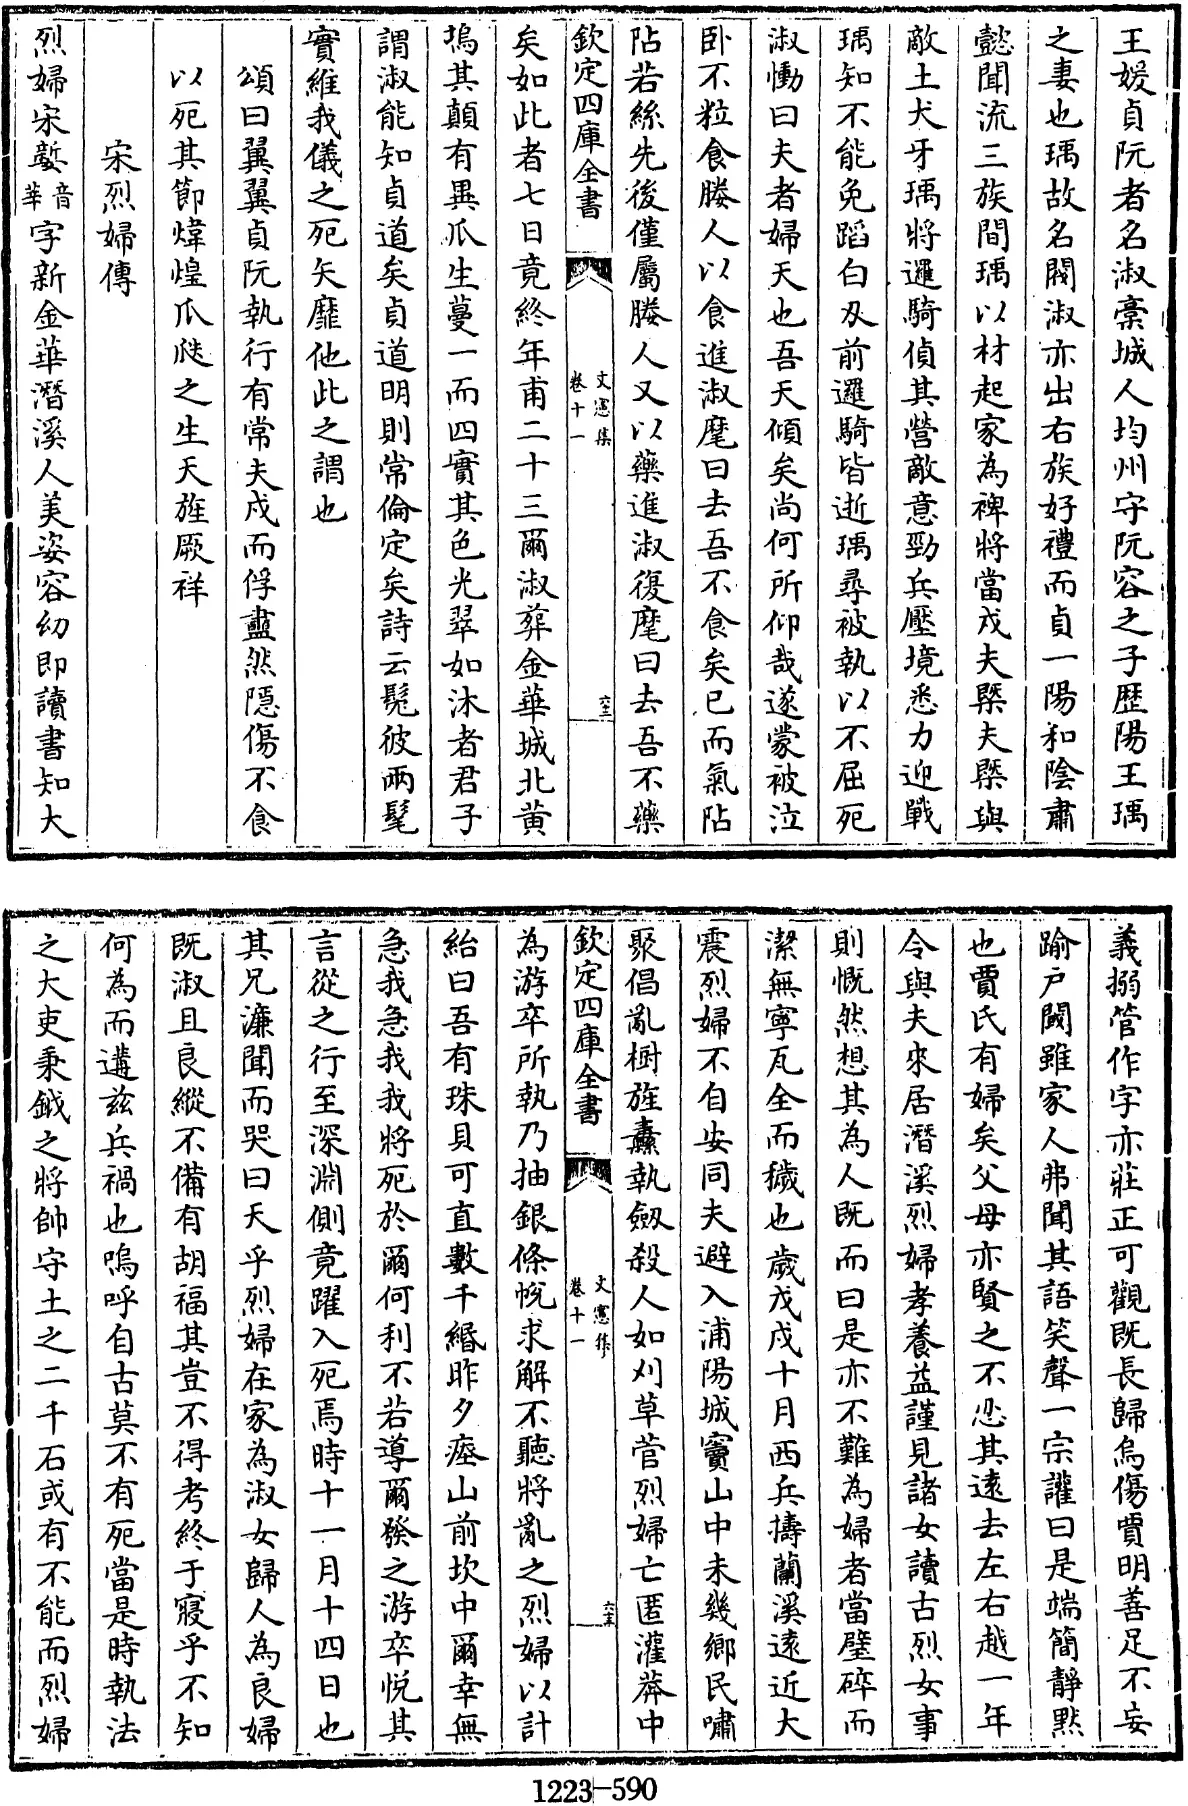 王媛貞阮者名淑稾城人均州守阮容之子歷陽王瑀
之妻也瑀故名閥淑亦出右族好禮而貞一陽和陰肅
懿聞流三族間瑀以材起家為裨將當戍夫槩夫槩與
敵土犬牙瑀將邏騎偵其營敵意勁兵壓境悉力迎戰
瑀知不能免蹈白刃前邏騎皆逝瑀尋被執以不屈死
淑慟曰夫者婦天也吾天傾矣尚何所仰哉遂蒙被泣
卧不粒食媵人以食進淑麾曰去吾不食矣已而氣阽
阽若絲先後僅屬媵人又以藥進淑復麾曰去吾不藥
欽定四庫全書 文憲集 卷十一 六三
矣如此者七日竟終年甫二十三爾淑葬金華城北黄
塢其顛有異瓜生蔓一而四實其色光翠如沐者君子
謂淑能知貞道矣貞道明則常倫定矣詩云髧彼兩髦
實維我儀之死矢靡他此之謂也
頌曰翼翼貞阮執行有常夫戍而俘衋然隠傷不食
以死其節煒煌瓜瓞之生天旌厥祥
宋烈婦傳
烈婦宋䔢音華字新金華潛溪人美姿容幼即讀書知大
義搦管作字亦莊正可觀既長歸烏傷賈明善足不妄
踰户閾雖家人弗聞其語笑聲一宗讙曰是端簡靜黙
也賈氏有婦矣父母亦賢之不忍其遠去左右越一年
令與夫來居潛溪烈婦孝養益謹見諸女讀古烈女事
則慨然想其為人既而曰是亦不難為婦者當璧碎而
潔無寧瓦全而穢也歲戊戌十月西兵擣蘭溪遠近大
震烈婦不自安同夫避入浦陽城竇山中未幾鄉民嘯
聚倡亂樹旌纛執劔殺人如刈草菅烈婦亡匿灌莽中
欽定四庫全書 文憲集 卷十一 六五
為游卒所執乃抽銀條帨求解不聽將亂之烈婦以計
紿曰吾有珠貝可直數千緡昨夕瘞山前坎中爾幸無
急我急我我將死於爾何利不若導爾發之游卒悅其
言從之行至深淵側竟躍入死焉時十一月十四日也
其兄濂聞而哭曰天乎烈婦在家為淑女歸人為良婦
既淑且良縱不備有胡福其豈不得考終于寢乎不知
何為而遘兹兵禍也嗚呼自古莫不有死當是時執法
之大吏秉鉞之將帥守土之二千石或有不能而烈婦
1223-590